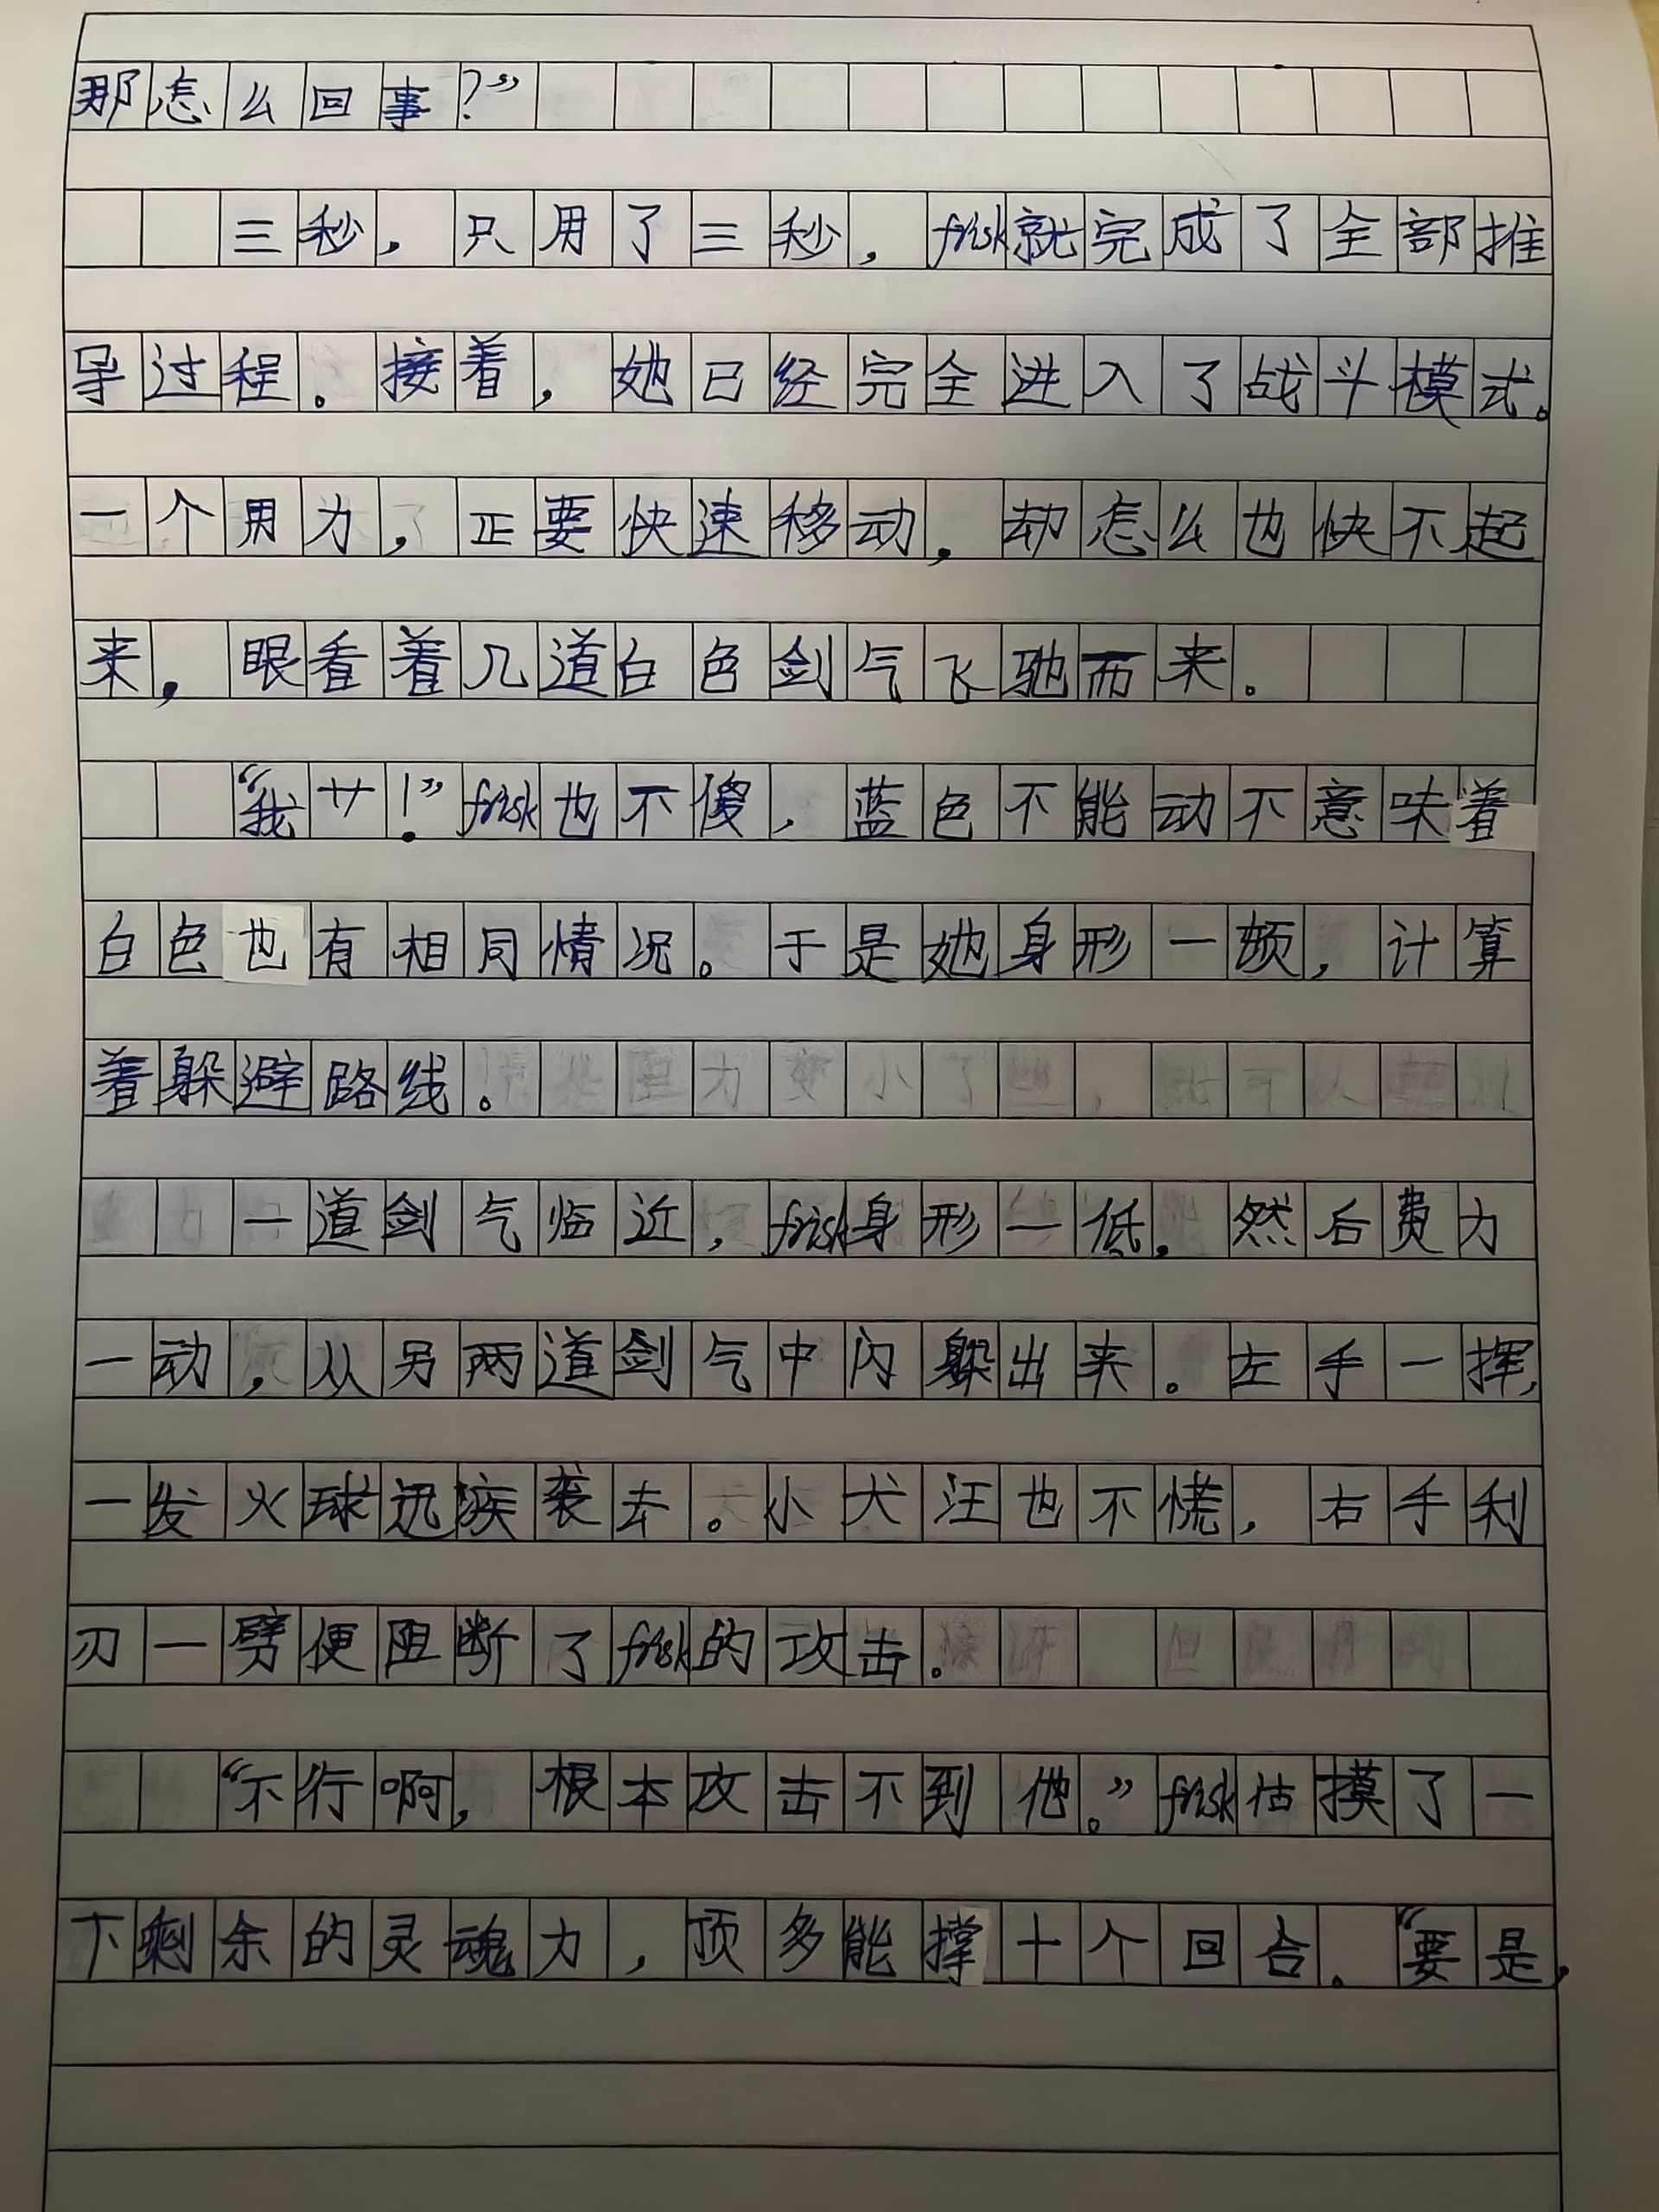 那怎么回事？”
三秒，只用了三秒，frisk就完成了全部推
导过程。接着，她已经完全进入了战斗模式。
一个用力，正要快速移动，却怎么也快不起
来，眼看着几道白色剑气飞驰而来。
“我艹！”frisk也不傻，蓝色不能动不意味着
白色也有相同情况。于是她身形一顿，计算
着躲避路线。
一道剑气临近，frisk身形一低，然后费力
一动，从另两道剑气中闪躲出来。左手一挥，
一发火球迅疾袭去。小犬汪也不慌，右手利
刃一劈便阻断了frisk的攻击。
“不行啊，根本攻击不到他。”frisk估摸了一
下剩余的灵魂力，顶多能撑十个回合。“要是，